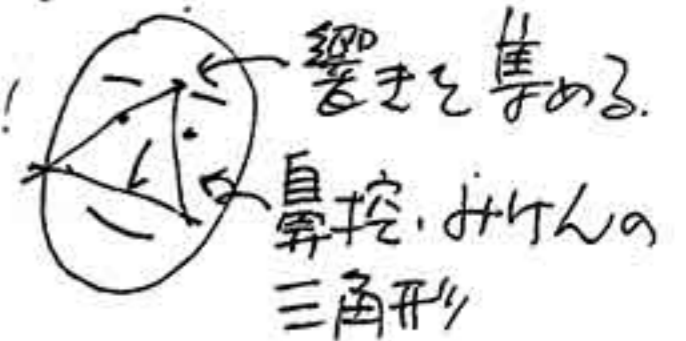 響きを集める.
鼻控・みけんの
三角形